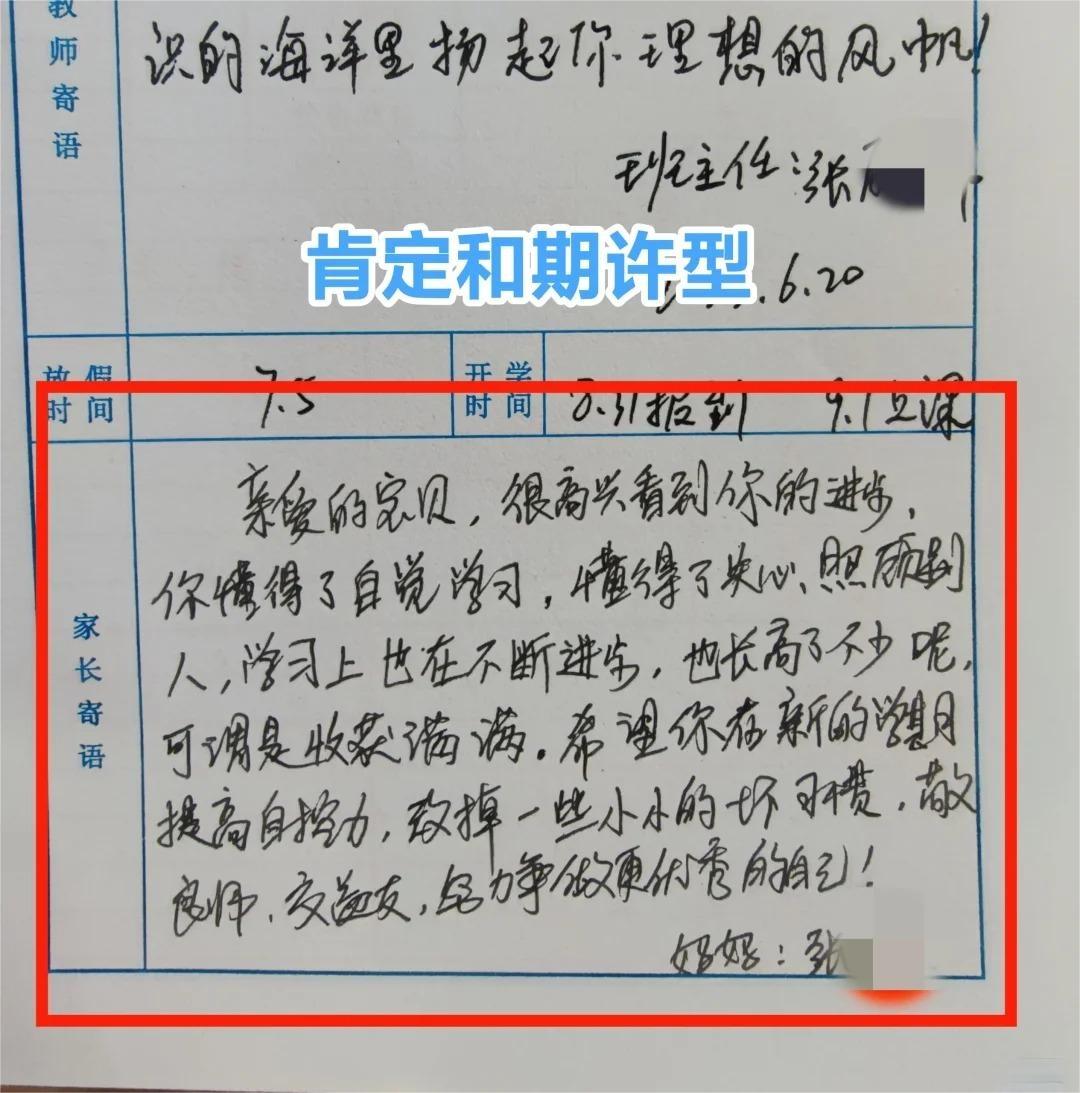 教师寄语
识的海洋里扬起你理想的风帆！
班主任：张
肯定和期许型
.6.20
放假时间
7.5
开学时间
8.31报到 9.1上课
家长寄语
亲爱的宝贝，很高兴看到你的进步，
你懂得了自觉学习，懂得了关心、照顾别
人，学习上也在不断进步，也长高了不少呢，
可谓是收获满满。希望你在新的学期
提高自控力，改掉一些小小的坏习惯，敬
良师，交益友，努力争做更优秀的自己！
妈妈：张